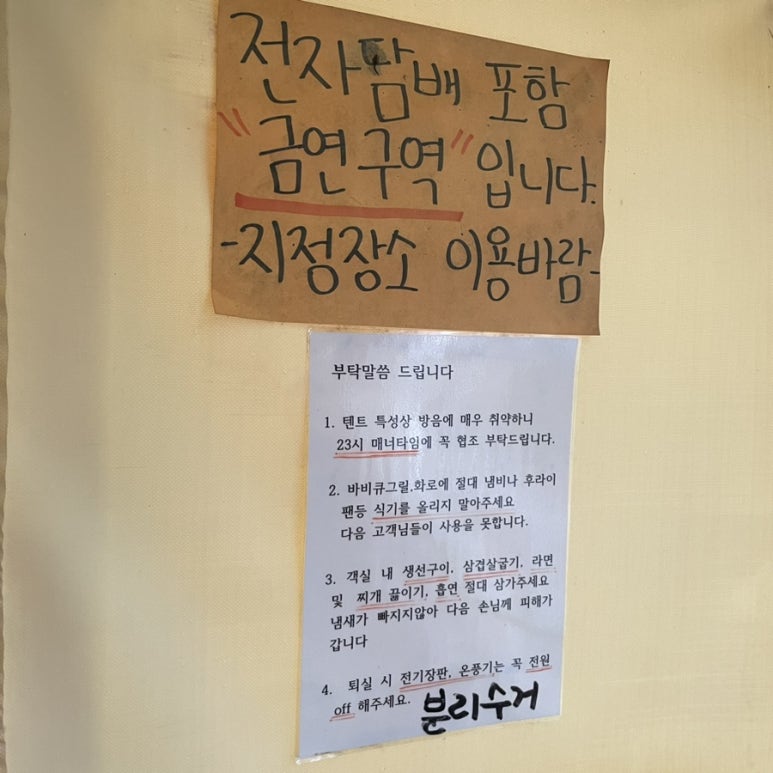 전자담배 포함
"금연구역" 입니다.
-지정장소 이용바람-
부탁말씀 드립니다
1. 텐트 특성상 방음에 매우 취약하니
23시 매너타임에 꼭 협조 부탁드립니다.
2. 바비큐그릴.화로에 절대 냄비나 후라이
팬등 식기를 올리지 말아주세요
다음 고객님들이 사용을 못합니다.
3. 객실 내 생선구이, 삼겹살굽기, 라면
및 찌개 끓이기, 흡연 절대 삼가주세요
냄새가 빠지지않아 다음 손님께 피해가
갑니다
4. 퇴실 시 전기장판, 온풍기는 꼭 전원
off 해주세요. 분리수거